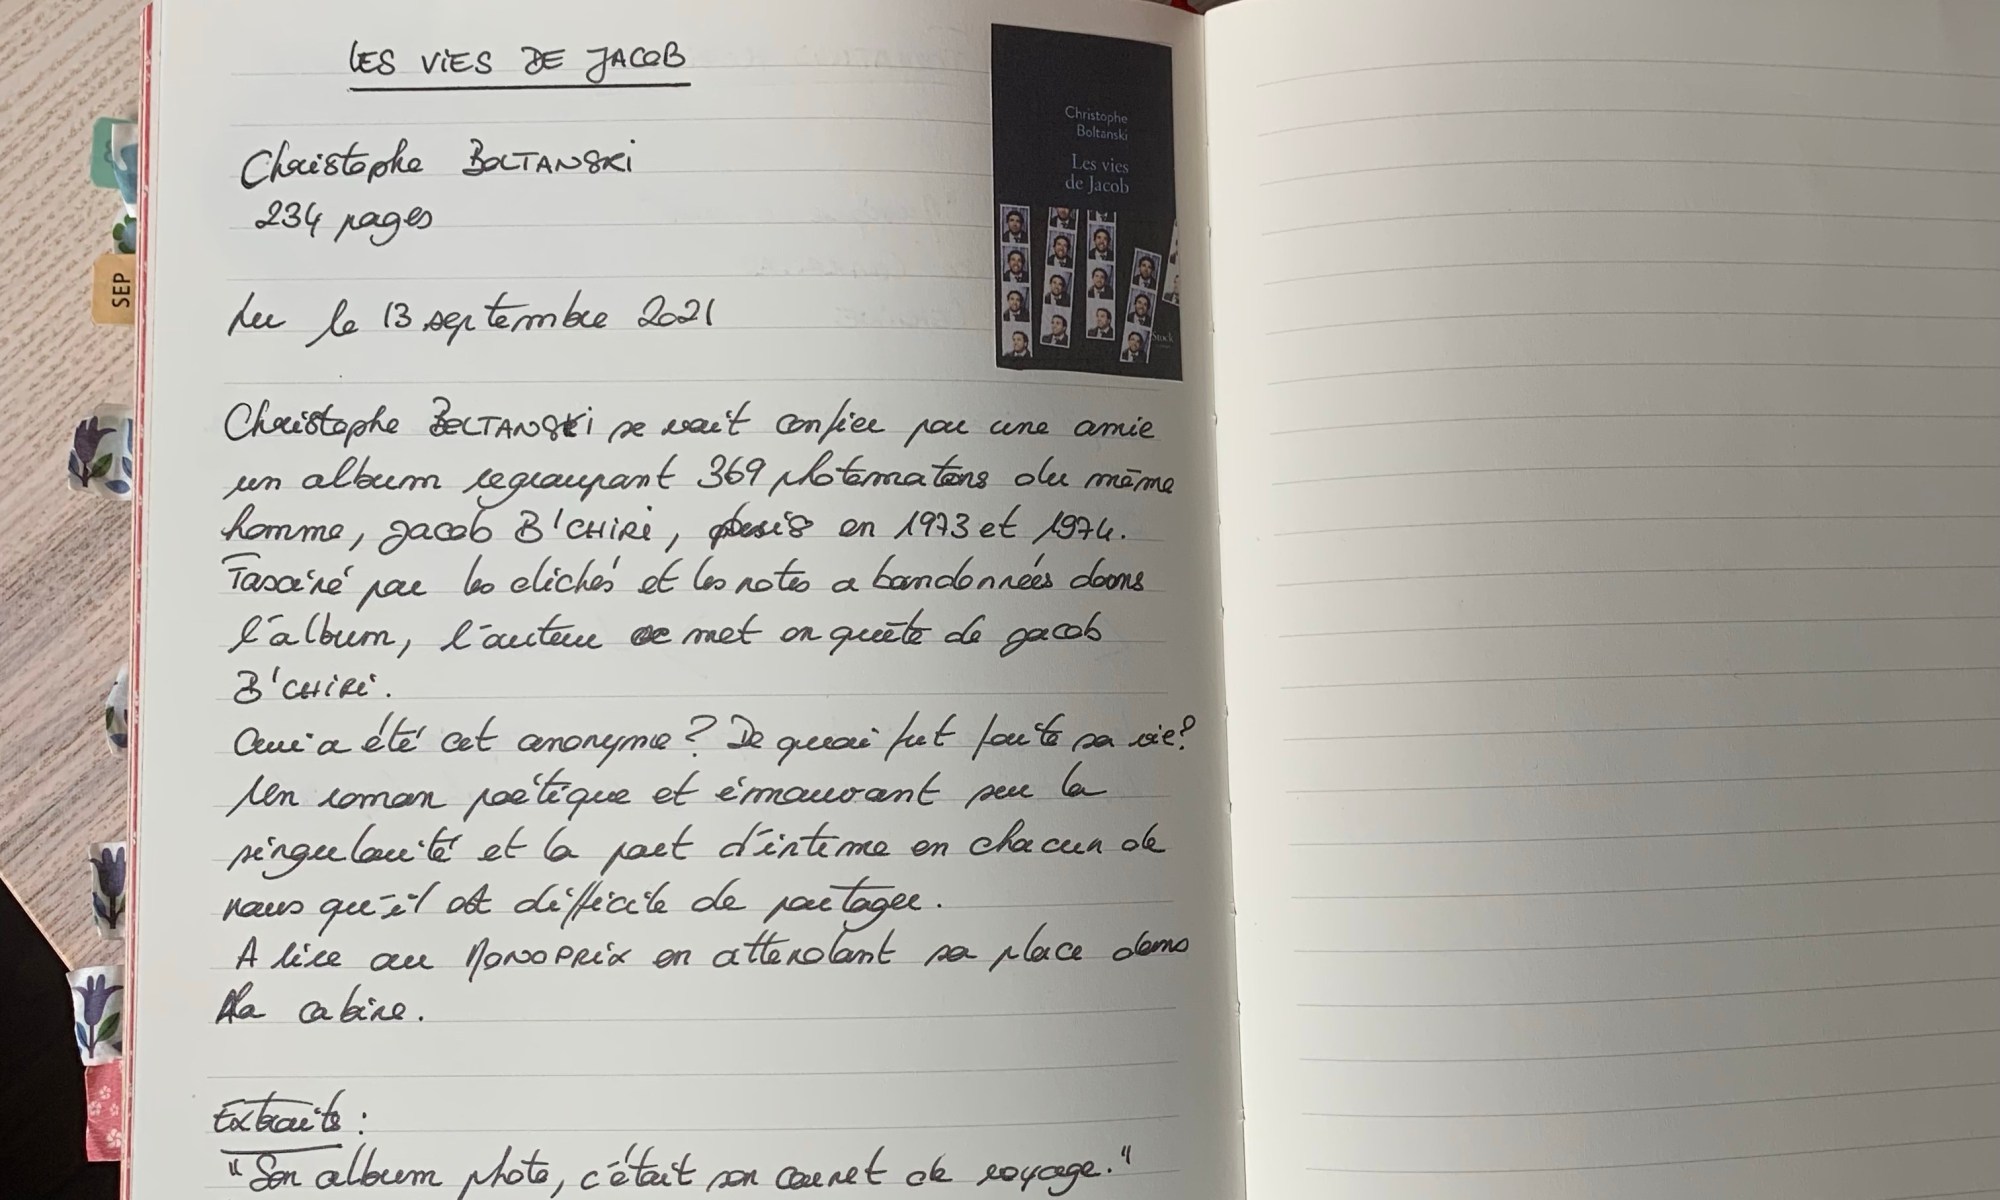 LES VIES DE JACOB
Christophe BOLTANSKI
234 pages
Lu le 13 septembre 2021
Christophe
Boltanski
Les vies
de Jacob
Stock
SEP
Christophe BOLTANSKI se voit confier par une amie
un album regroupant 369 photomatons du même
homme, Jacob B'CHIRI, pris en 1973 et 1974.
Fasciné par les clichés et les notes abandonnées dans
l'album, l'auteur se met en quête de Jacob
B'CHIRI.
Qui a été cet anonyme? De quoi fut faite sa vie?
Un roman poétique et émouvant sur la
singularité et la part d'intime en chacun de
nous qu'il est difficile de partager.
A lire au MONOPRIX en attendant sa place dans
la cabine.
Extraits :
"Son album photo, c'était son carnet de voyage."